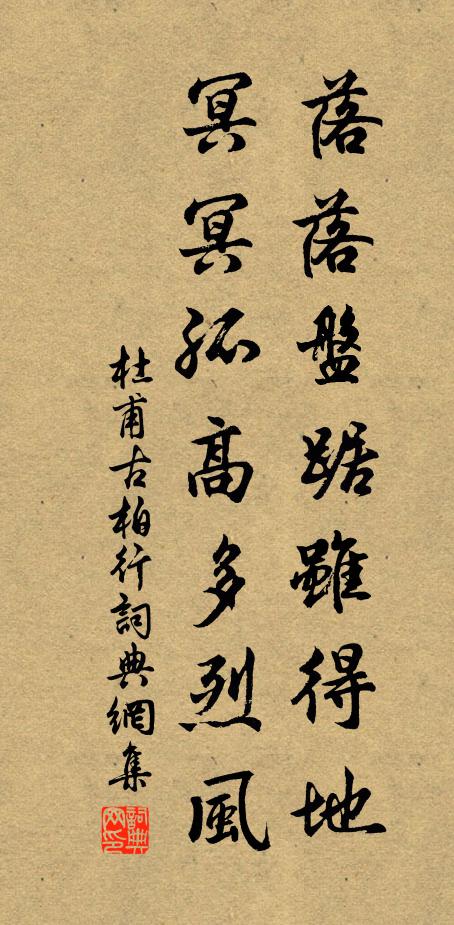 落落盤踞雖得地
冥冥孤高多烈風
杜甫古柏行詞典網集
詞典网印